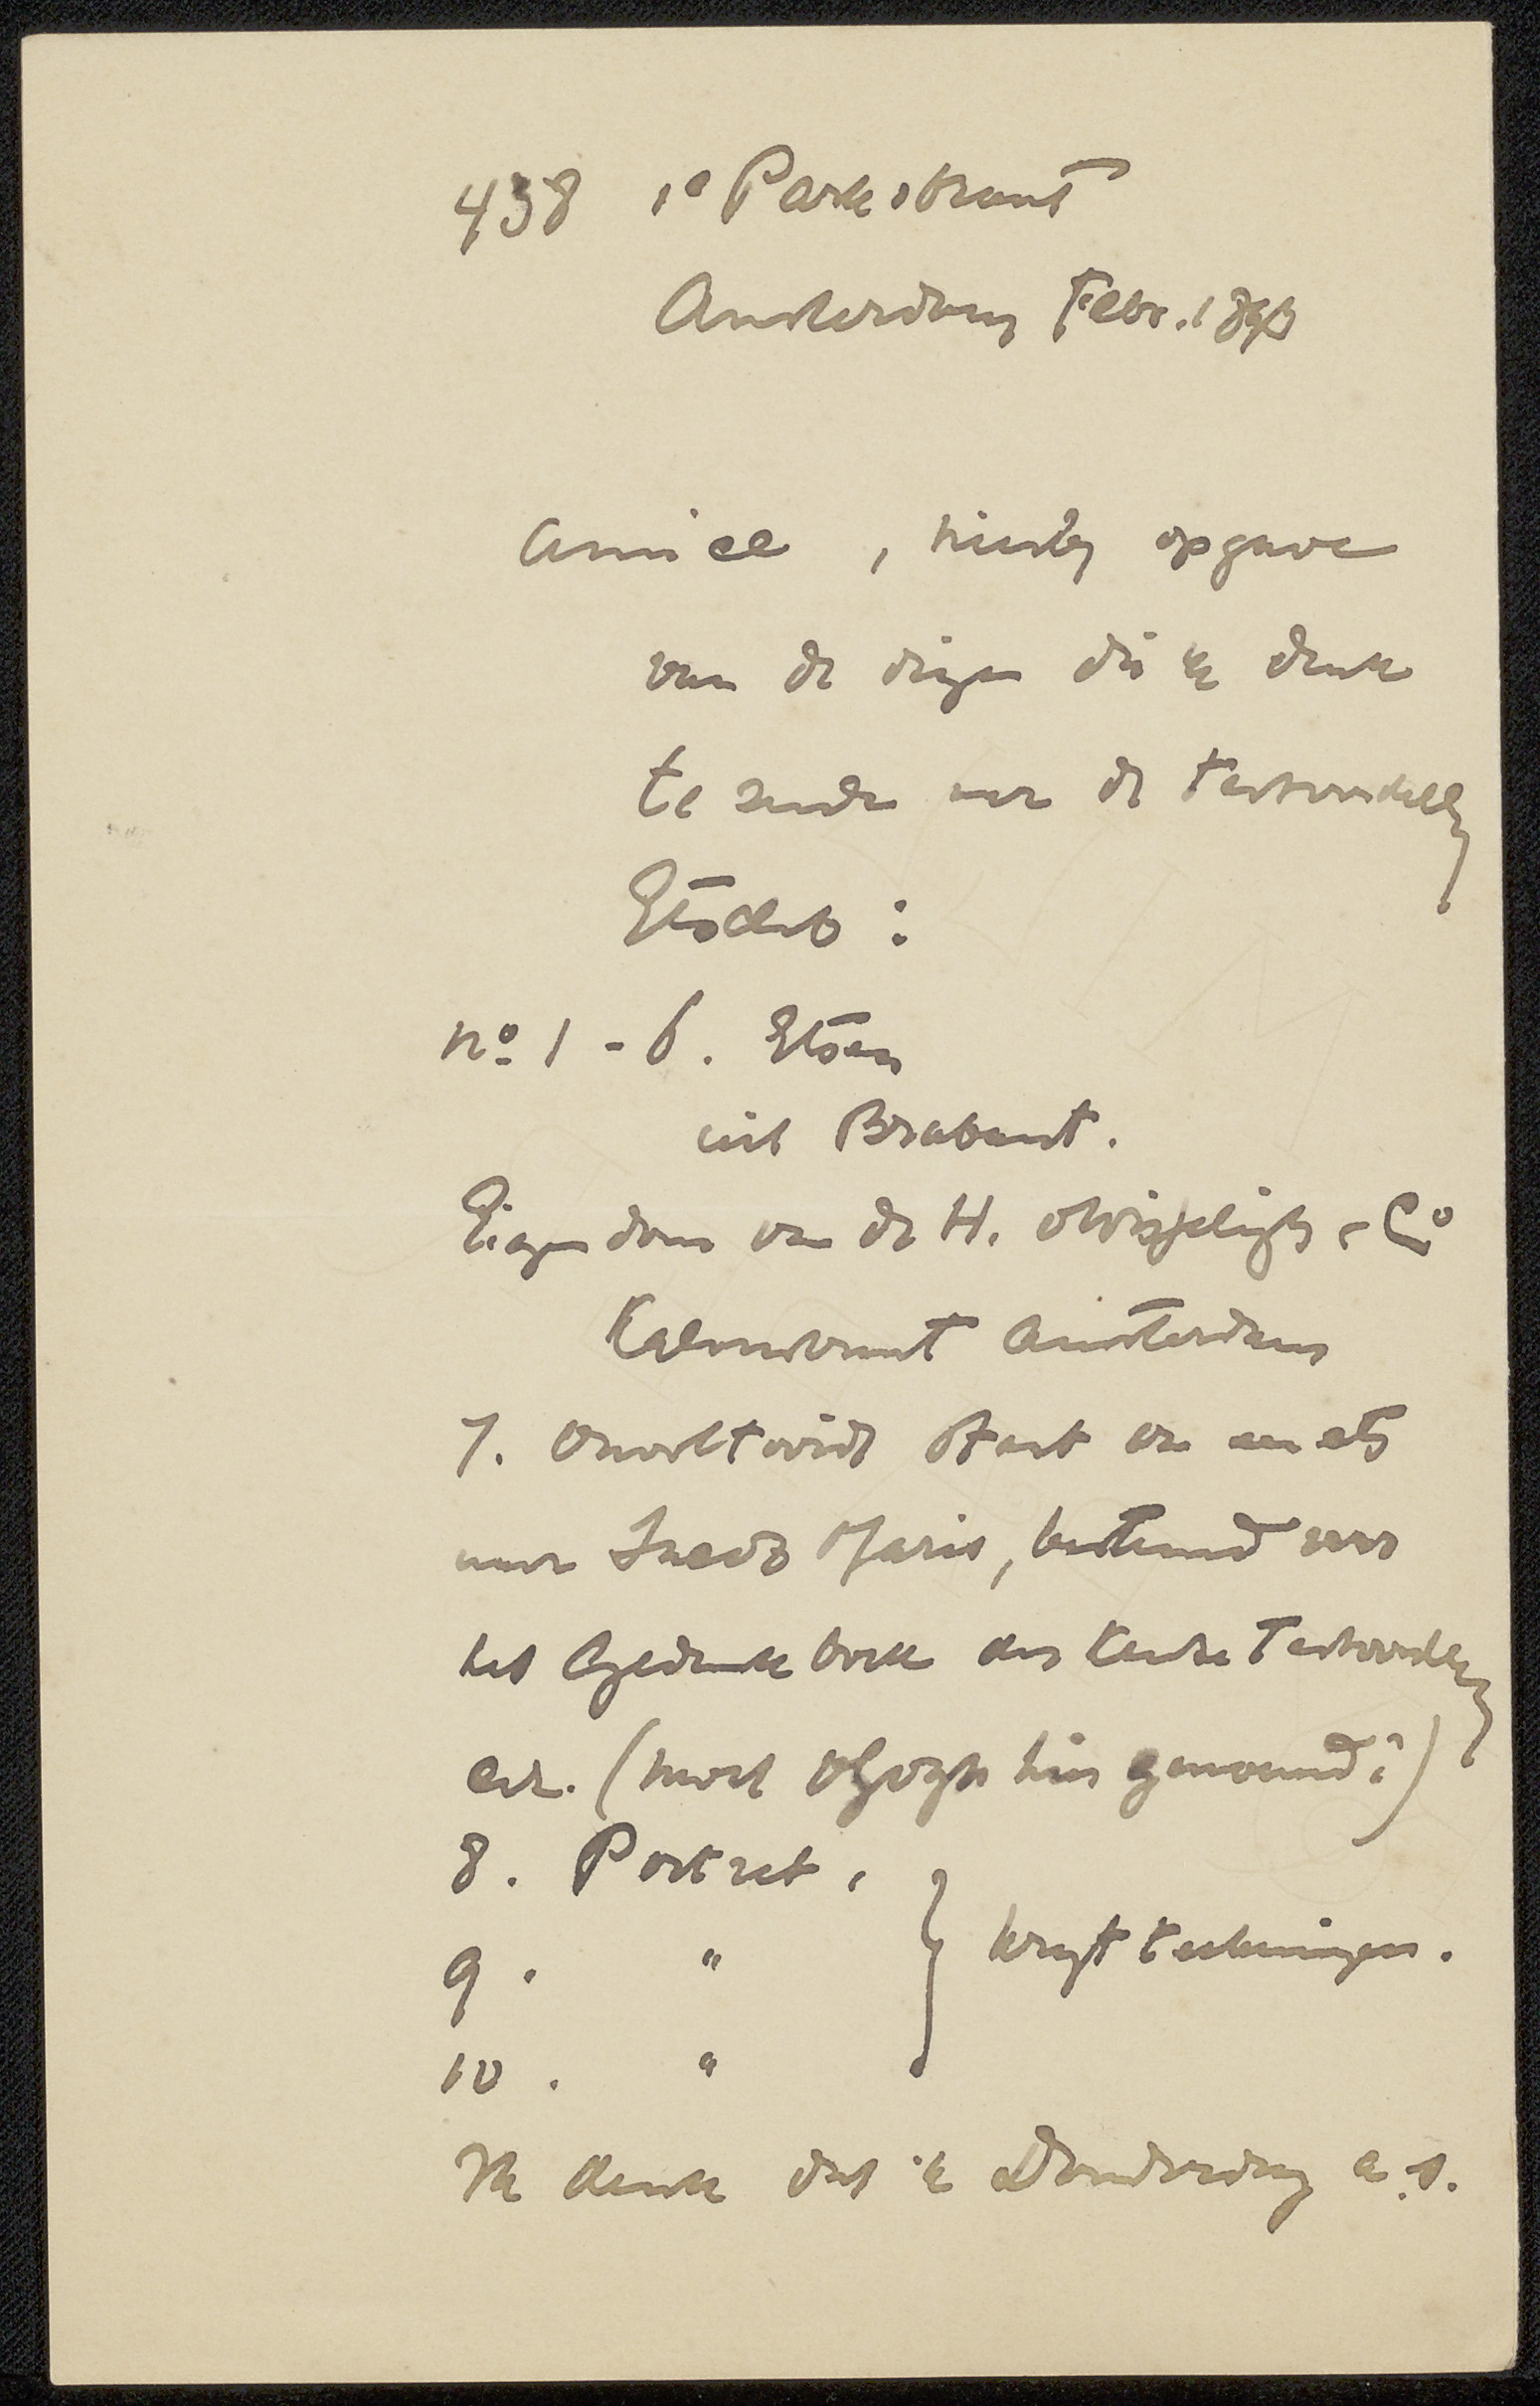 438 1e Parkstraat
Amsterdam Febr. 189
Amice, hierbij opgave
van de dingen die ik denk
te zenden voor de tentoonstelling
Etsclub:
no 1-6. Etsen
uit Brabant.
Eigendom van de H. v Wisselingh & Co
Kalverstraat Amsterdam
7. Onvoltooide staat van een ets
naar Thijs Maris, bestemd voor
het Gedenkboek der Keuze Tentoonstelling
enz. (moet vGogh hier genoemd?)
8. Portret.
9. " } kryt teekeningen.
10. "
Ik denk dat ik Donderdag a.s.